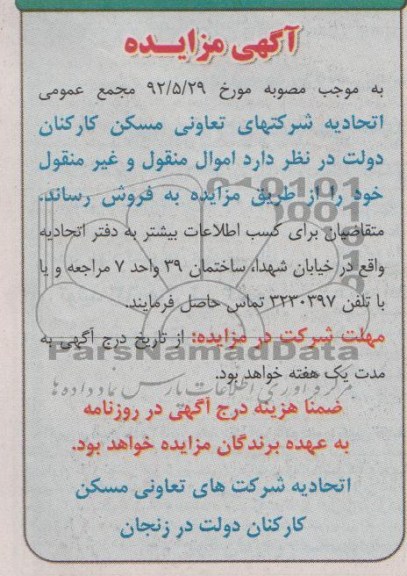 آگهی مزایده
به موجب مصوبه مورخ ۹۲/۵/۲۹ مجمع عمومی
اتحادیه شرکتهای تعاونی مسکن کارکنان
دولت در نظر دارد اموال منقول و غیر منقول
خود را از طریق مزایده به فروش رساند.
متقاضیان برای کسب اطلاعات بیشتر به دفتر اتحادیه
واقع در خیابان شهدا، ساختمان ۳۹ واحد ۷ مراجعه و یا
با تلفن ۳۲۳۰۳۹۷ تماس حاصل فرمایند.
مهلت شرکت در مزایده: از تاریخ درج آگهی به
ParsNamadData
مدت یک هفته خواهد بود.
مرکز فرآوری اطلاعات پارس نماد داده ها
ضمنا هزینه درج آگهی در روزنامه
به عهده برندگان مزایده خواهد بود.
اتحادیه شرکت های تعاونی مسکن
کارکنان دولت در زنجان